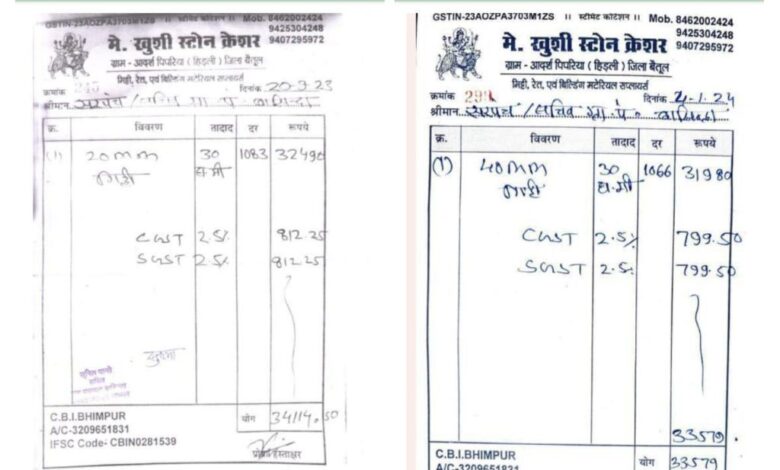 GSTIN-23AOZPA3703M1ZS ॥ स्टीमेट कोटेशन ॥ Mob. 8462002424
9425304248
9407295972
मे. खुशी स्टोन क्रेशर
ग्राम - आदर्श पिपरिया ( हिड़ली ) जिला बैतूल
गिट्टी, रेत, एवं बिल्डिंग मटेरियल सप्लायर्स
क्रमांक 247 दिनांक 20-9-23
श्रीमान सरपंच / सचिव ग्रा. पं.
क्र. विवरण तादाद दर रूपये
(1) 20mm 30 1083 32490
गिट्टी घ.मी
CGST 2.5% 812.25
SGST 2.5% 812.25
सचिव
C.B.I.BHIMPUR योग 34114.50
A/C-3209651831
IFSC Code- CBIN0281539
हस्ताक्षर
GSTIN-23AOZPA3703M1ZS ॥ स्टीमेट कोटेशन ॥ Mob. 8462002424
9425304248
9407295972
मे. खुशी स्टोन क्रेशर
ग्राम - आदर्श पिपरिया ( हिड़ली ) जिला बैतूल
गिट्टी, रेत, एवं बिल्डिंग मटेरियल सप्लायर्स
क्रमांक 299 दिनांक 4-1-24
श्रीमान सरपंच / सचिव ग्रा. पं.
क्र. विवरण तादाद दर रूपये
(1) 40mm 30 1066 31980
गिट्टी घ.मी
CGST 2.5% 799.50
SGST 2.5% 799.50
33579
C.B.I.BHIMPUR योग 33579
A/C-3209651831